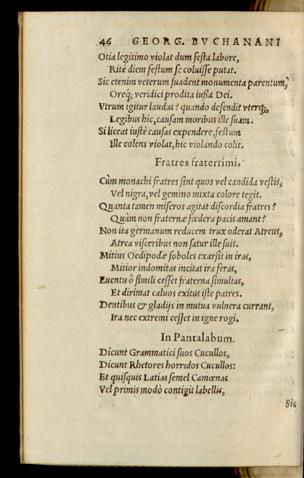 46 GEORG. BVCHANANI
Otia legitimo violat dum festa labore,
Ritè diem festum se coluisse putat.
Sic etenim veterum suadent monumenta parentum,
Oreq; veridici prodita iussa Dei.
Vtrum igitur laudas? quando defendit vterq;,
Legibus hic, causam moribus ille suam.
Si liceat iustè causas expendere, festum
Ille colens violat, hic violando colit.
Fratres fraterrimi.
Cùm monachi fratres sint quos vel candida vestis,
Vel nigra, vel gemino mixta colore tegit.
Quanta tamen miseros agitat discordia fratres?
Quàm non fraternæ fœdera pacis amant?
Non ita germanum reducem trux oderat Atreus,
Atrea visceribus non satur ille suis.
Mitius Oedipodæ soboles exarsit in iras,
Mitior indomitas incitat ira feras,
Euentu ô simili cesset fraterna simultas,
Et dirimat caluos exitus iste patres.
Dentibus & gladijs in mutua vulnera currant,
Ira nec extremi cesset in igne rogi.
In Pantalabum.
Dicunt Grammatici suos Cucullos,
Dicunt Rhetores horridos Cucullos:
Et quisquis Latias semel Camœnas
Vel primis modò contigit labellis,
Sic